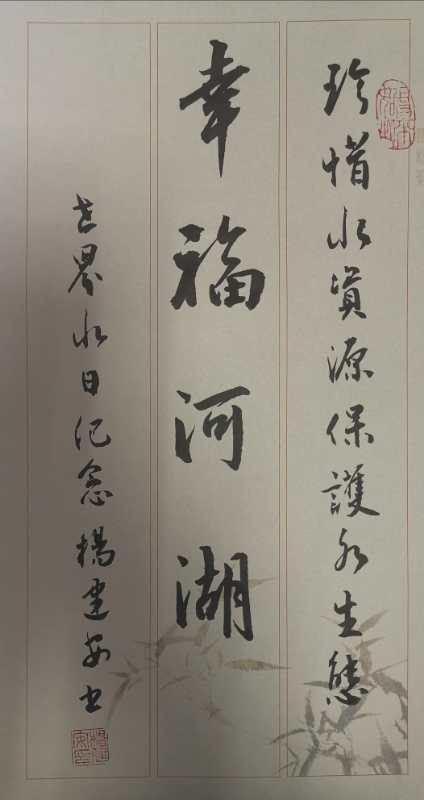 珍惜水資源保護水生態
幸福河湖
世界水日纪念楊建安书